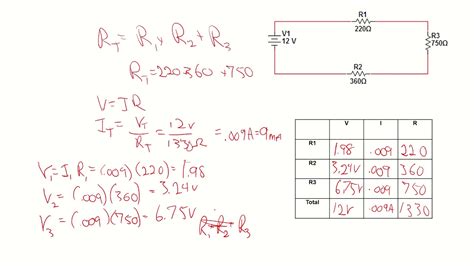 R_T = R_1 + R_2 + R_3
R_1 = 220 360 + 750
V = I R
I_T = V_T / R_T = 12v / 1330Ω = .009A = 9mA
V_1 = I_1 R_1 = (.009)(220) = 1.98
V_2 = (.009)(360) = 3.24v
V_3 = (.009)(750) = 6.75v
R_1 R_2 R_3
R1
220Ω
V1
12 V
R3
750Ω
R2
360Ω
V I R
R1 1.98 .009 220
R2 3.24v .009 360
R3 6.75v .009 750
Total 12v .009A 1330